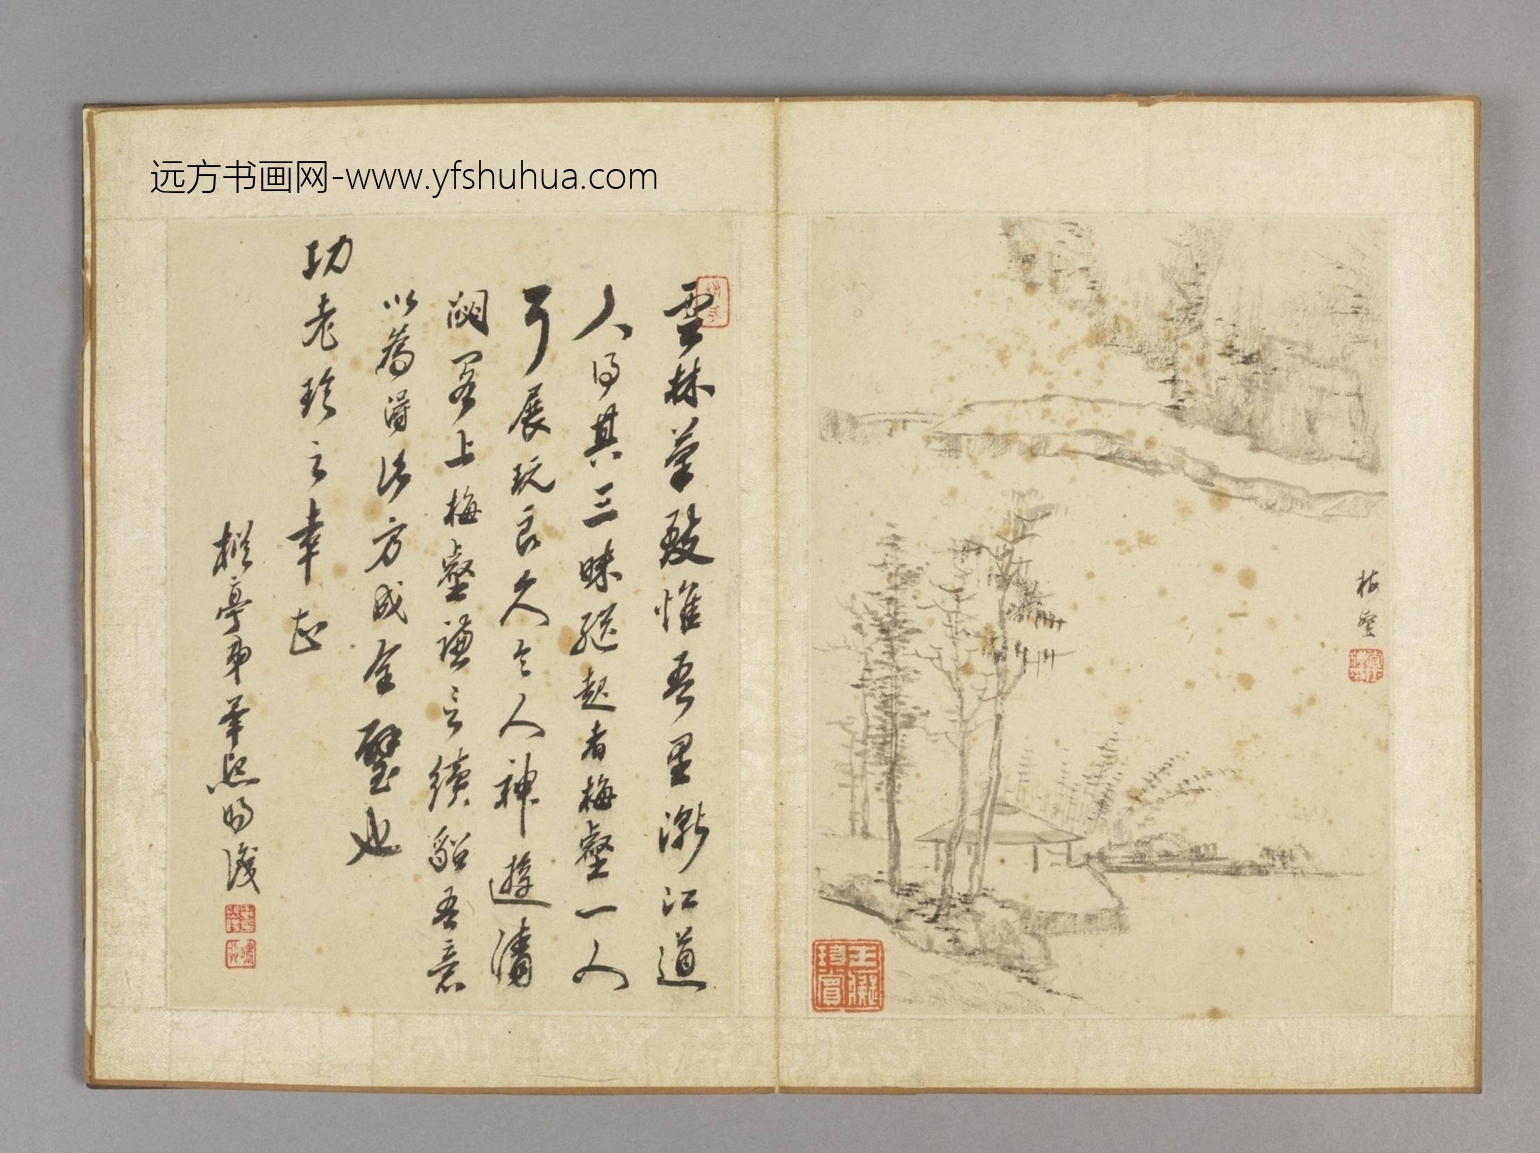 远方书画网-www.yfshuhua.com
雲林筆致惟吾里漸江道
人得其三昧繼起者梅壑一人
了展玩良久令人神遊清
閟閣上梅壑謙言續貂吾意
以為得法方成全璧也
功老珍之幸正
椒亭弟華
梅壑
王
珍賞